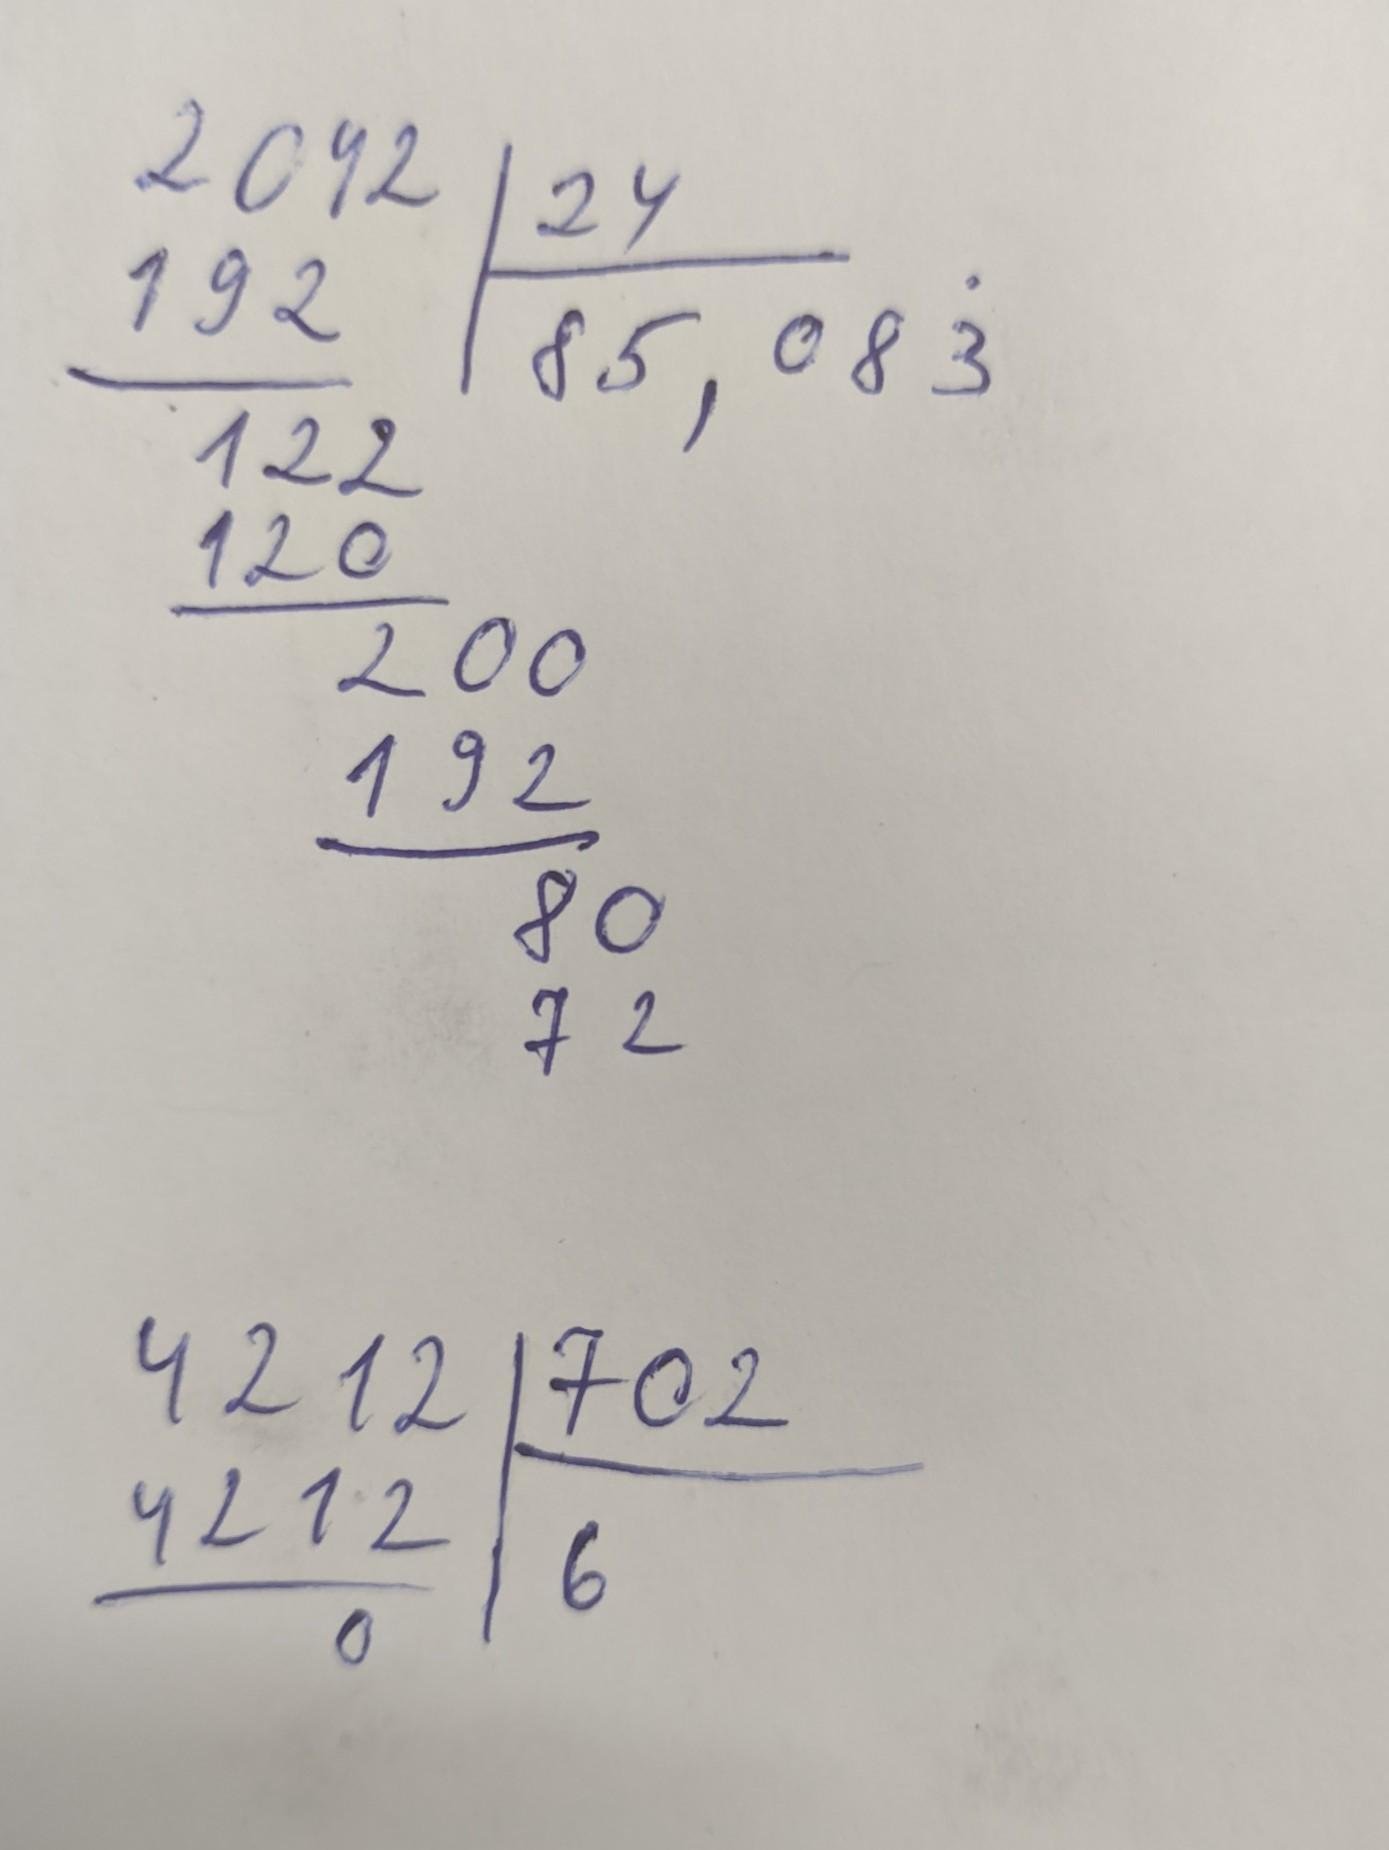 2042 | 24
192 | 85,083̇
122
120
200
192
80
72
4212 | 702
4212 | 6
0